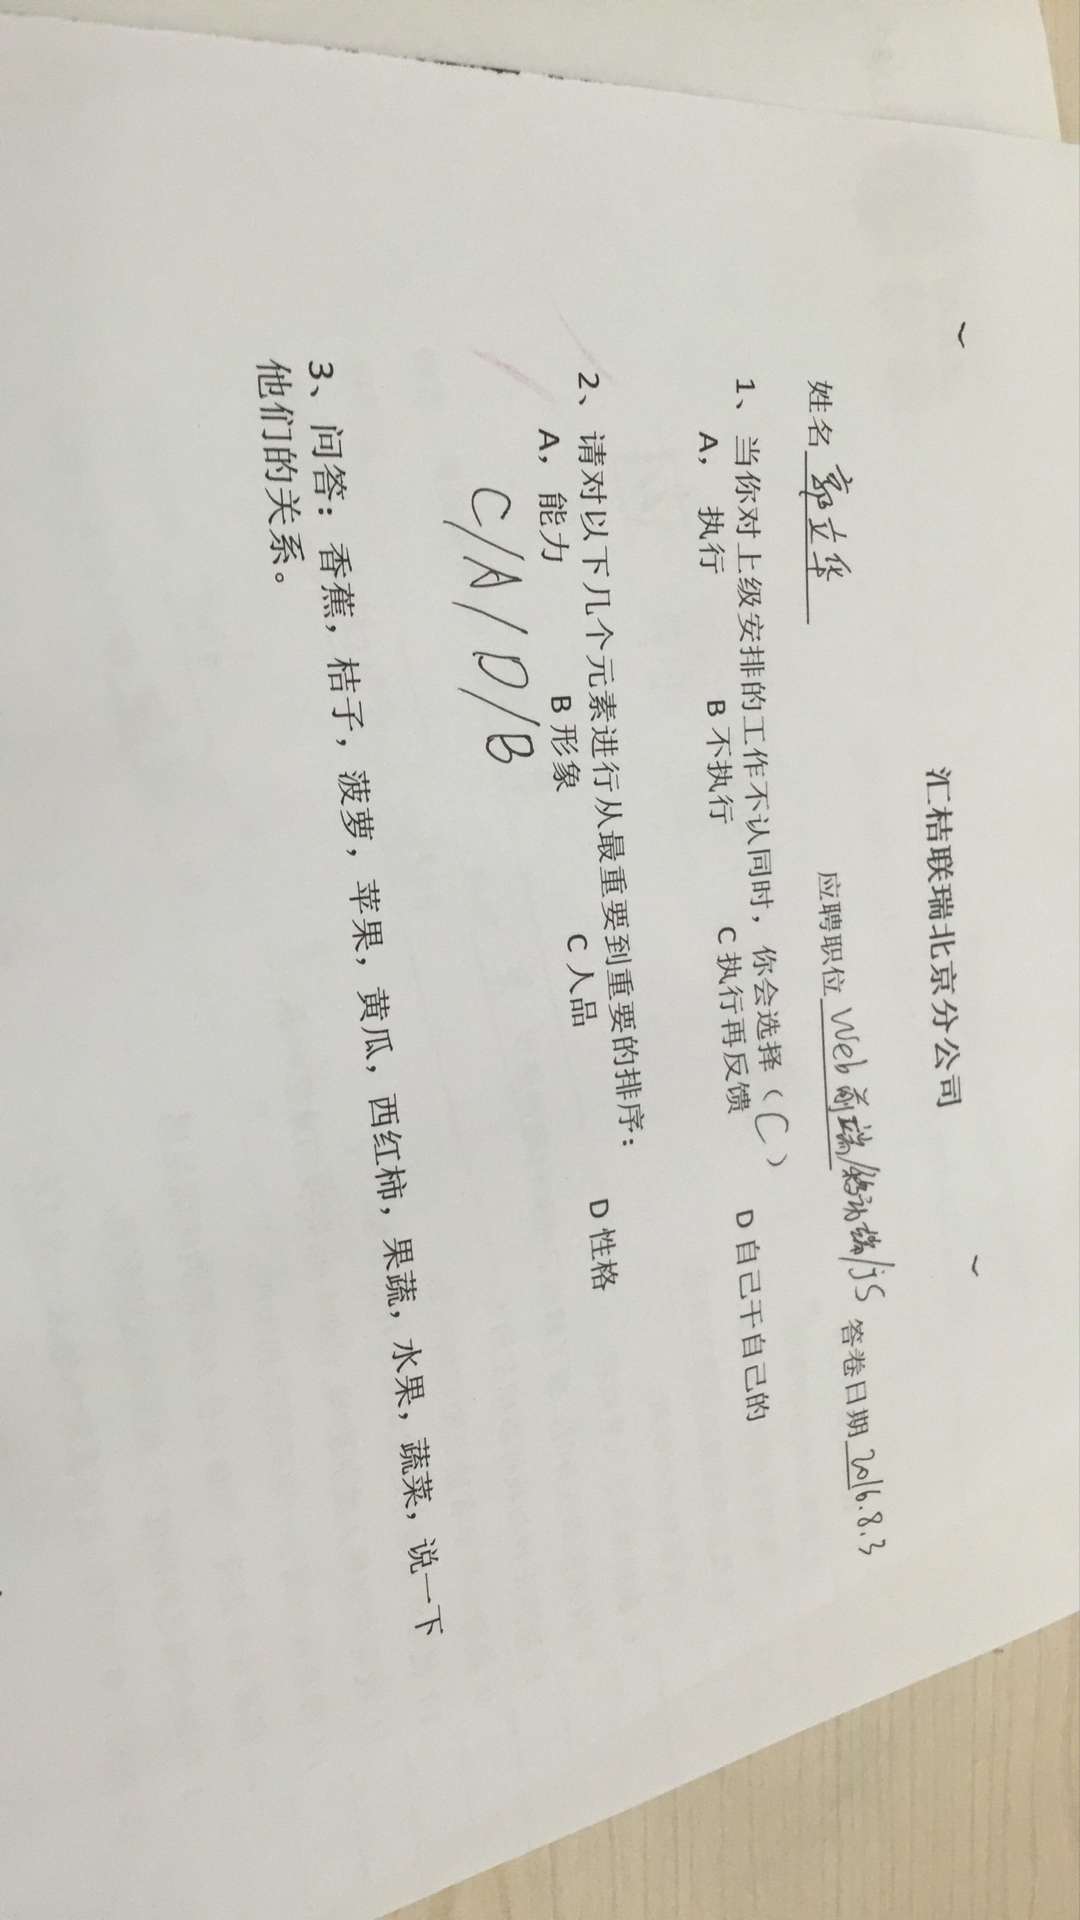 汇桔联瑞北京分公司
姓名 郭立华 应聘职位 Web前端/移动端/js 答卷日期 2016.8.3
1、当你对上级安排的工作不认同时，你会选择（C）
A，执行 B 不执行 C 执行再反馈 D 自己干自己的
2、请对以下几个元素进行从最重要到重要的排序：
A，能力 B 形象 C 人品 D 性格
C/A/D/B
3、问答：香蕉，桔子，菠萝，苹果，黄瓜，西红柿，果蔬，水果，蔬菜，说一下
他们的关系。